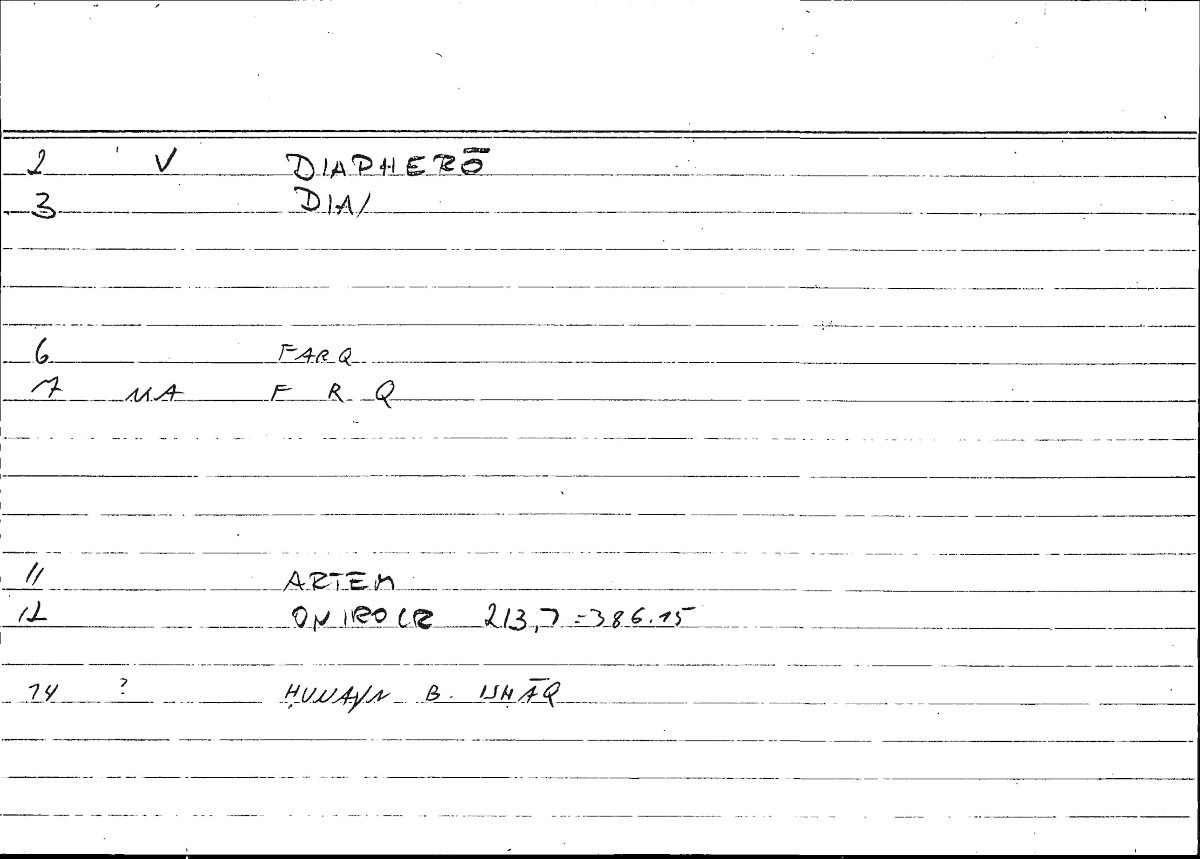 2 V DIAPHERŌ
3 DIA/
6 FARQ
7 MA F R Q
11 ARTEM
12 ONIROCR 213,7=386.15
14 ? ḤUNAYN B. ISḤĀQ